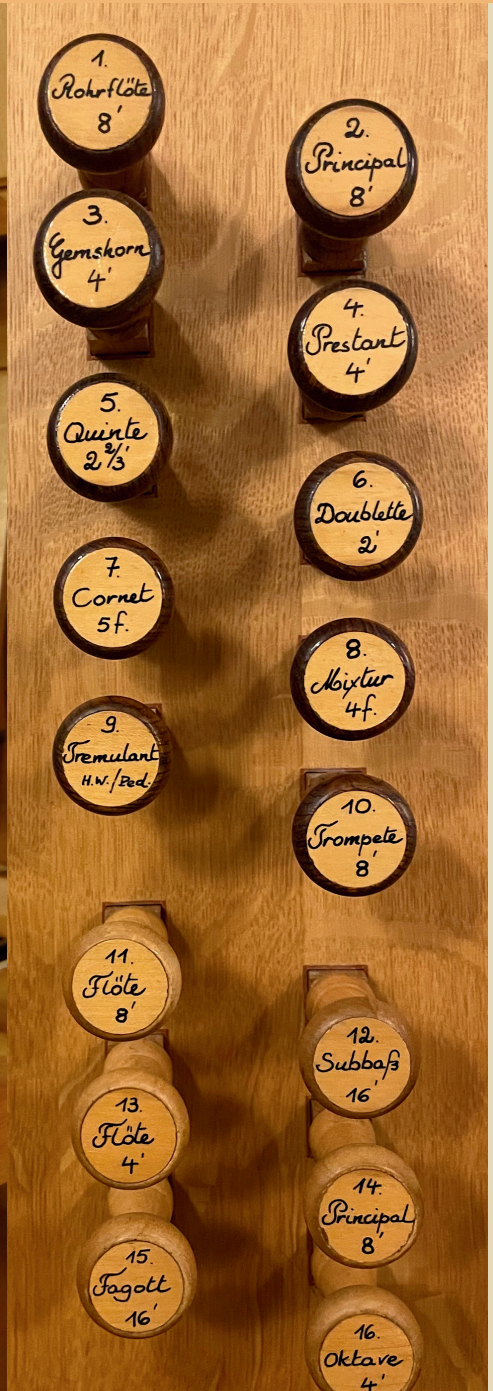 1.
Rohrflöte
8'
2.
Principal
8'
3.
Gemshorn
4'
4.
Prestant
4'
5.
Quinte
2 2/3'
6.
Doublette
2'
7.
Cornet
5f.
8.
Mixtur
4f.
9.
Tremulant
H.W./Ped.
10.
Trompete
8'
11.
Flöte
8'
12.
Subbaß
16'
13.
Flöte
4'
14.
Principal
8'
15.
Fagott
16'
16.
Oktave
4'